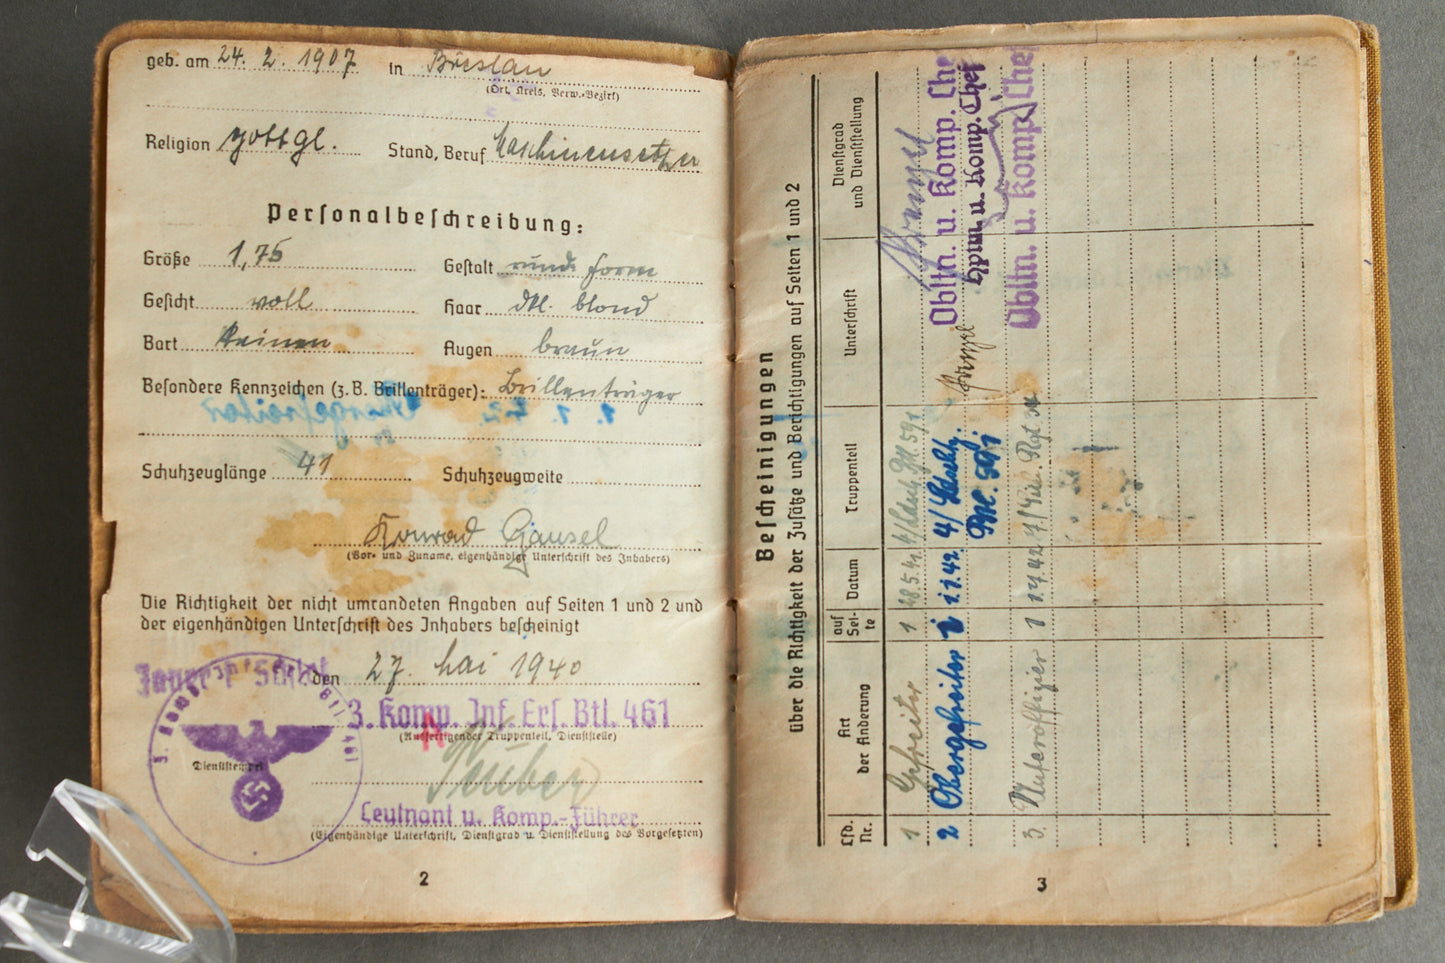 geb. am 24. 2. 1907 in Breslau
(Ort, Kreis, Verw.-Bezirk)
Religion gottgl. Stand, Beruf Maschinensetzer
Personalbeschreibung:
Größe 1,75 Gestalt runde Form
Gesicht voll Haar dkl. blond
Bart keinen Augen braun
Besondere Kennzeichen (z. B. Brillenträger): Brillenträger
Schuhzeuglänge 41 Schuhzeugweite
Konrad Gansel
(Vor- und Zuname, eigenhändige Unterschrift des Inhabers)
Die Richtigkeit der nicht umrandeten Angaben auf Seiten 1 und 2 und
der eigenhändigen Unterschrift des Inhabers bescheinigt
den 27. Mai 1940
3. Komp. Inf. Ers. Btl. 461
(Ausfertigender Truppenteil, Dienststelle)
Dienststempel
Leutnant u. Komp.-Führer
(Eigenhändige Unterschrift, Dienstgrad u. Dienststellung des Vorgesetzten)
2
Bescheinigungen
über die Richtigkeit der Zusätze und Berichtigungen auf Seiten 1 und 2
Lfd. Nr.
Art der Änderung
auf Seite
Datum
Truppenteil
Unterschrift
Dienstgrad und Dienststellung
1 Gefreiter 1 28.5.41
Obltn. u. Komp. Che
2 Obergefreiter 1 1.1.42 4/
Btl. 591
Hptm. u. Komp. Chef
3. Unteroffizier 1 1.7.42
Obltn. u. Komp. Chef
3